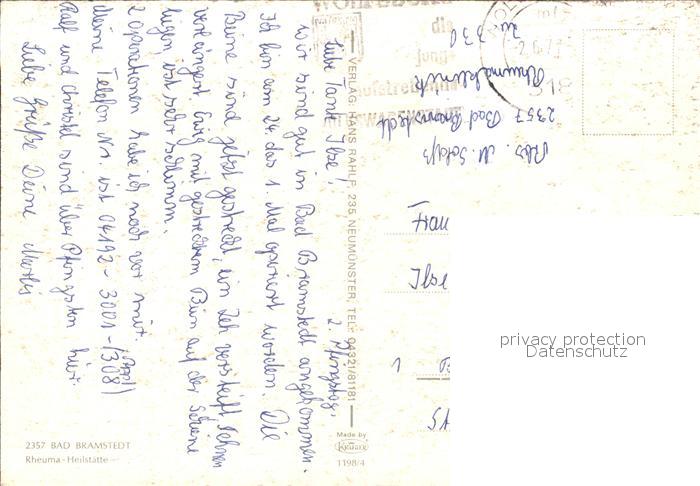 2. Pfingsttag.
Liebe Tante Ilse,
wir sind gut in Bad Bramstedt angekommen.
Ich bin am 24 das 1. Mal operiert worden. Die
Beine sind jetzt gestreckt, ein Zeh versteift Sehnen
verlängert. Ewig mit gestrecktem Bein auf der Schiene
liegen ist sehr schlimm.
2 Operationen habe ich noch vor mir.
Meine Telefon Nr. ist 04192-3001-/308/
Ralf und Christel sind über Pfingsten hier.
Liebe Grüße Deine
VERLAG: HANS RAHLF, 235 NEUMÜNSTER, TEL. 04321/81181
Abs. M.
2357 Bad Bramstedt
Rheumaklinik
Zi 330
2357 BAD BRAMSTEDT
Rheuma-Heilstätte
Made by
KRÜGER
1198/4
privacy protection
Datenschutz